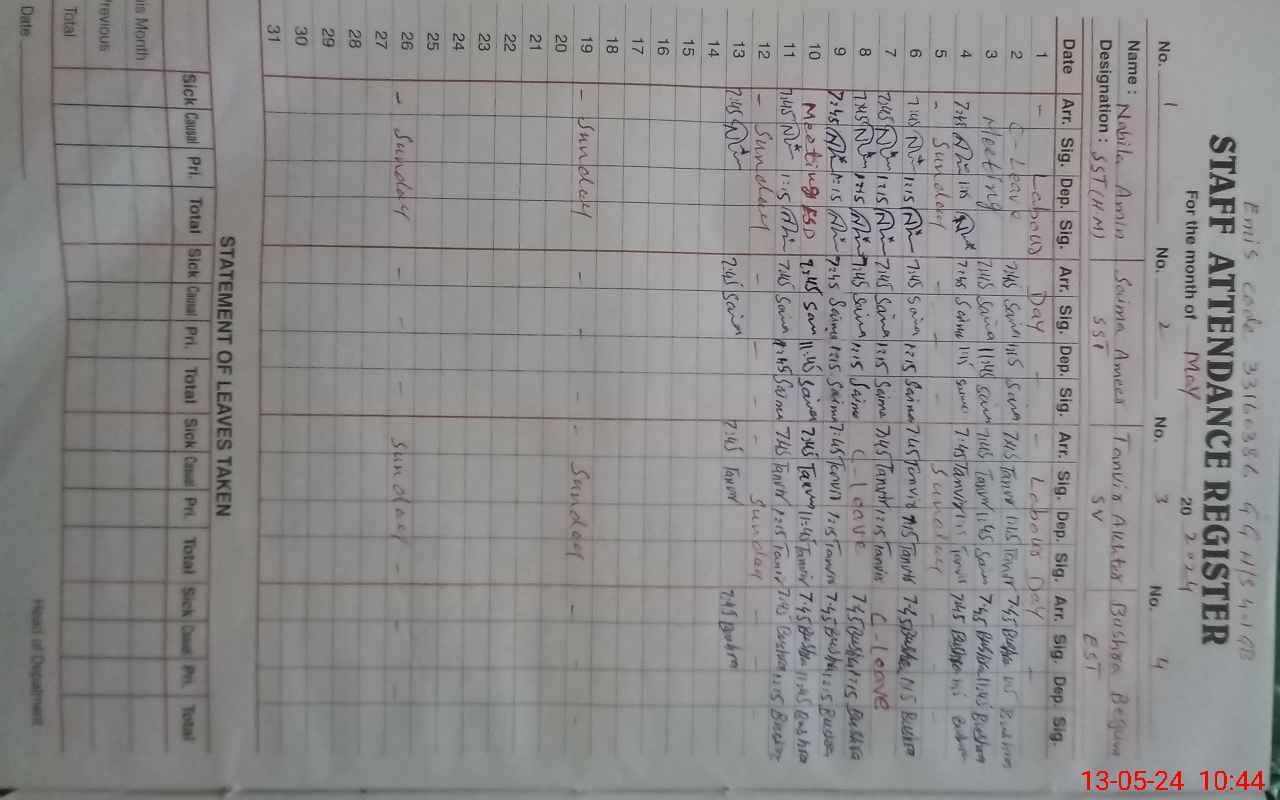 Emis code
STAFF ATTENDANCE REGISTER
For the month of May 20 2024
No. 1 No. 2 No. 3 No. 4
Name : Nabila Amin Saima Ameer Tanvir Akhter Bushra Begum
Designation : SST(HM) SST SV EST
Date Arr. Sig. Dep. Sig. Arr. Sig. Dep. Sig. Arr. Sig. Dep. Sig. Arr. Sig. Dep. Sig.
1 - Labour Day - - Labour Day -
2 C-Leave 7:45 Saima 1:15 Saima 7:45 Tanvir 1:15 Tanvir 7:45 Bushra 1:15 Bushra
3 Meeting 7:45 Saima 11:45 Saima 7:45 Tanvir 11:45 7:45 Bushra 11:45 Bushra
4 7:45 1:15 7:45 Saima 1:15 Saima 7:45 Tanvir 1:15 Tanvir 7:45 Bushra 1:15 Bushra
5 - Sunday - - - Sunday -
6 7:45 1:15 7:45 Saima 1:15 Saima 7:45 Tanvir 1:15 Tanvir 7:45 Bushra 1:15 Bushra
7 7:45 1:15 7:45 Saima 1:15 Saima 7:45 Tanvir 1:15 Tanvir C-leave
8 7:45 1:15 7:45 Saima 1:15 Saima C-leave 7:45 Bushra 1:15 Bushra
9 7:45 1:15 7:45 Saima 1:15 Saima 7:45 Tanvir 1:15 Tanvir 7:45 Bushra 1:15 Bushra
10 Meeting 7:45 Saima 11:45 Saima 7:45 Tanvir 11:45 Tanvir 7:45 Bushra 11:45 Bushra
11 7:45 1:15 7:45 Saima Saima 7:45 Tanvir 1:15 Tanvir 7:45 Bushra 1:15 Bushra
12 - Sunday - - - - Sunday - -
13 7:45 7:45 Saima 7:45 Tanvir 7:45 Bushra
14
15
16
17
18
19 - Sunday - - - - Sunday - - -
20
21
22
23
24
25
26 - Sunday - - - Sunday - - -
27
28
29
30
31
STATEMENT OF LEAVES TAKEN
Sick Casual Pri. Total Sick Casual Pri. Total Sick Casual Pri. Total Sick Casual Pri. Total
is Month
revious
Total
Date
Head of Department
13-05-24 10:44